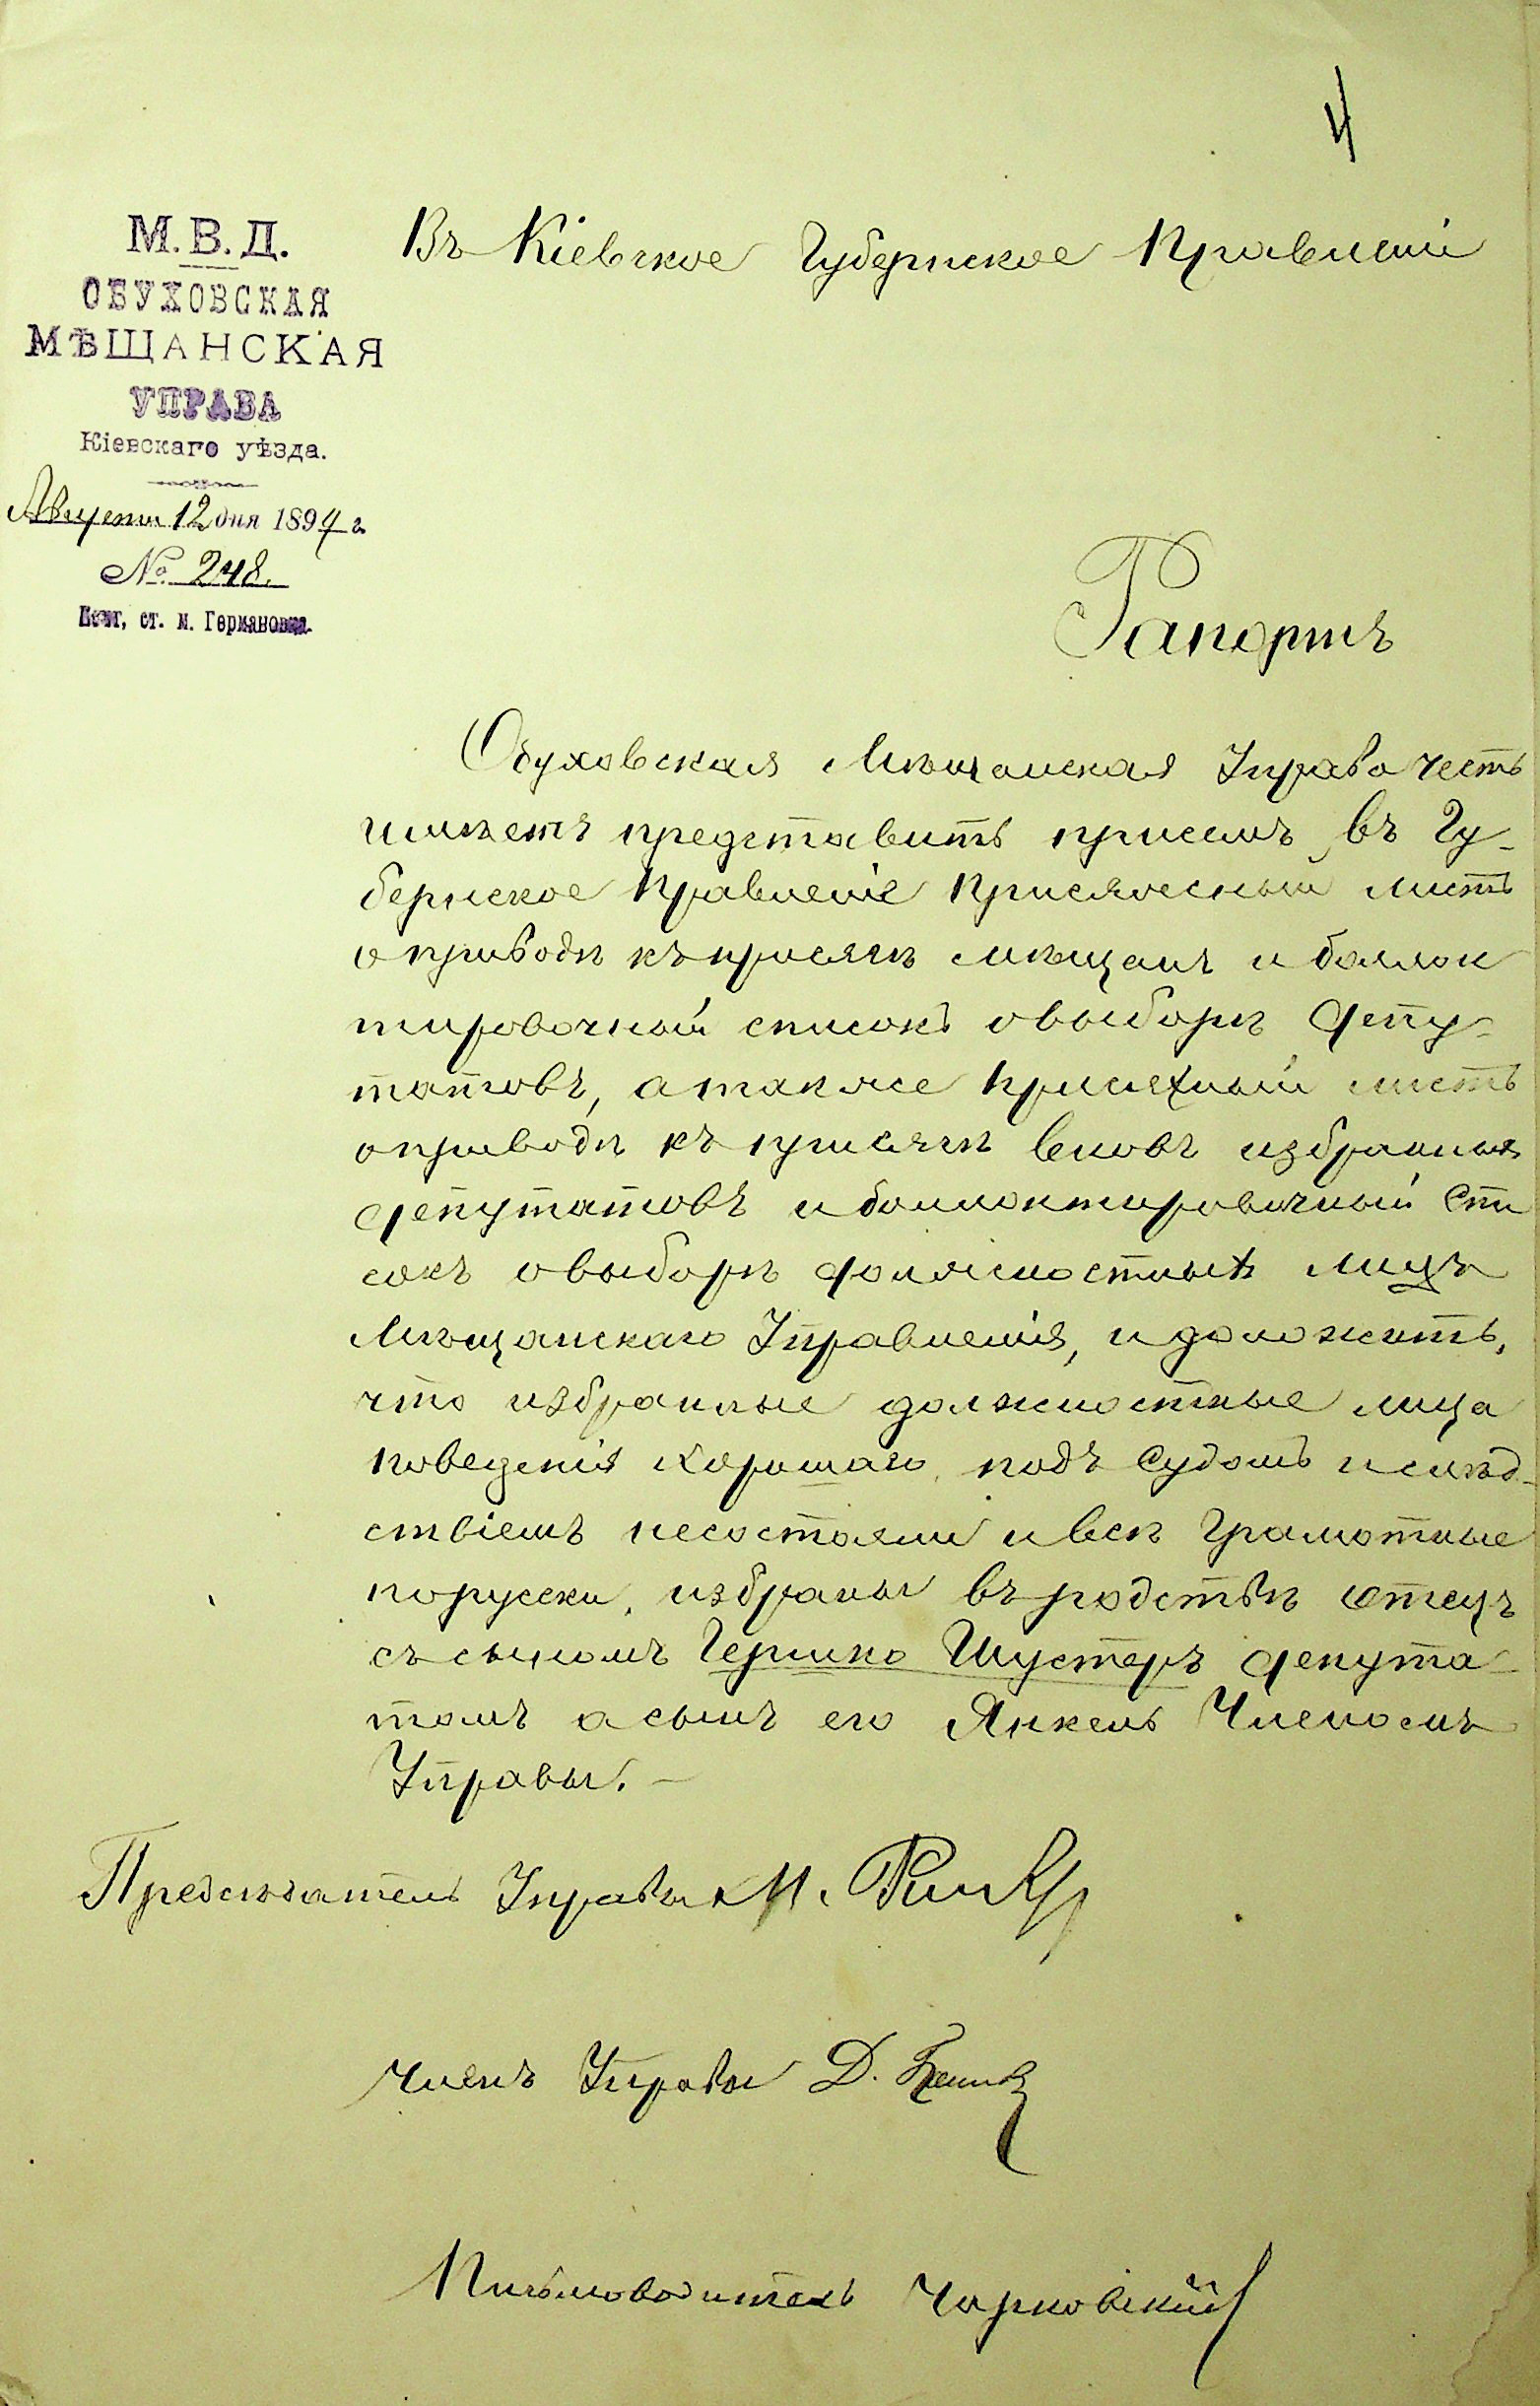 4
М.В.Д.
ОБУХОВСКАЯ
МѢЩАНСКАЯ
УПРАВА
Кіевскаго уѣзда.
Августа 12 дня 1894 г.
№ 248.
Почт. ст. м. Германовка.
Въ Кіевское Губернское Правленіе
Рапортъ
Обуховская Мѣщанская Управа честь
имѣетъ представить присемъ въ Гу-
бернское Правленіе Присяжный листъ
о приводѣ къ присягѣ мѣщанъ и баллон
тировочный списокъ о выборѣ Депу-
татовъ, а также присяжный листъ
о приводѣ къ присягѣ вновь избранныхъ
Депутатовъ и баллонтировочный Спи
сокъ о выборѣ должностныхъ лицъ
Мѣщанскаго Управленія, и доложить,
что избранные должностные лица
поведенія хорошаго, подъ судомъ и слѣд-
ствіемъ несостояли и всѣ грамотные
порусски, избраны въ родствѣ отецъ
съ сыномъ Гершко Шустеръ депута-
томъ а сынъ его Янкель Членомъ
Управы.
Предсѣдатель Управы М.
Членъ Управы Д.
Письмоводитель Чарновскій